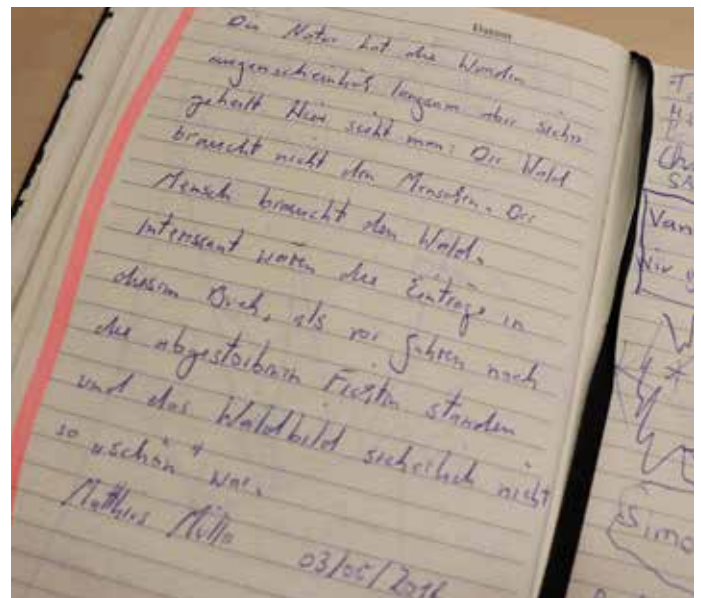 Datum
Die Natur hat die Wunden
augenscheinlich langsam aber sicher
geheilt Hier sieht man: Der Wald
braucht nicht den Menschen. Der
Mensch braucht den Wald.
Interessant waren die Einträge in
diesem Buch, als vor Jahren noch
die abgestorbenen Fichten standen
und das Waldbild sicherlich nicht
so „schön" war.
Matthias Müller
03/05/2016
Van
wir
Simo